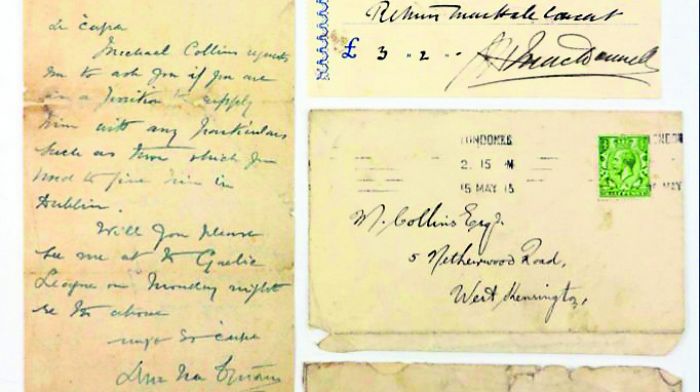 a cara
Michael Collins requests
me to ask you if you are
in a position to supply
him with any particulars
such as those which you
used to give him in
Dublin.
Will you please
see me at the Gaelic
League on Monday night
re the above
mise do cara
Return
£ 3 " 2 - "
MacDonnell
LONDON
2. 15 M
15 MAY 15
M. Collins Esqr.
5 Netherwood Road,
West Kensington,